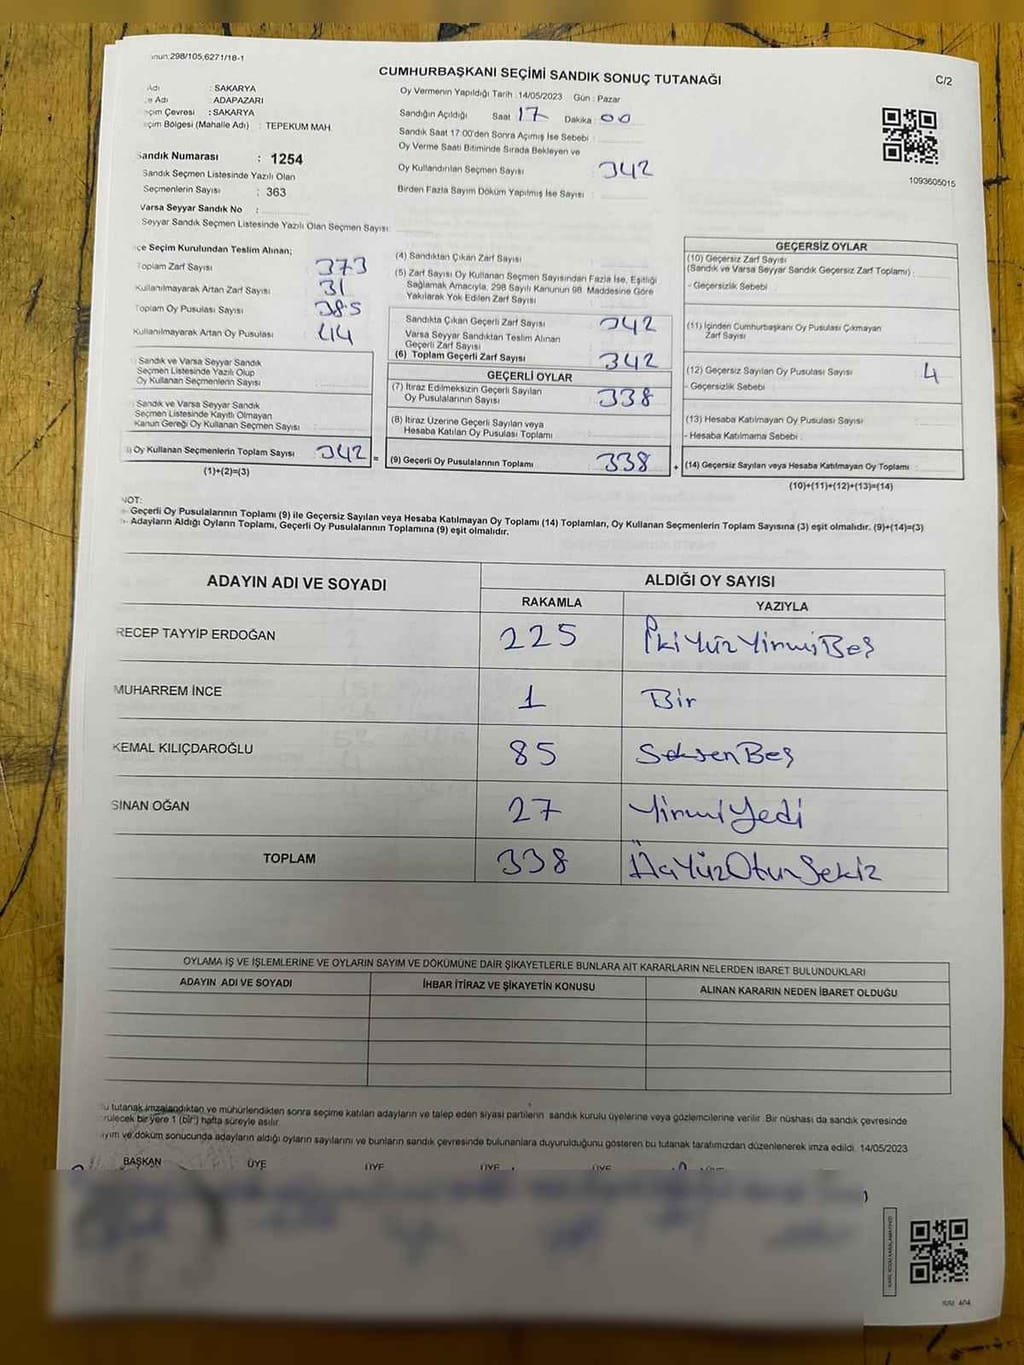 298/105,6271/18-1
CUMHURBAŞKANI SEÇİMİ SANDIK SONUÇ TUTANAĞI
C/2
: SAKARYA
: ADAPAZARI
: SAKARYA
(Mahalle Adı) : TEPEKUM MAH.
Oy Vermenin Yapıldığı Tarih : 14/05/2023 Gün : Pazar
Sandığın Açıldığı Saat 17 Dakika : 00
Sandık Saat 17:00'den Sonra Açımış İse Sebebi :
Oy Verme Saati Bitiminde Sırada Bekleyen ve
Oy Kullandırılan Seçmen Sayısı 342
Birden Fazla Sayım Döküm Yapılmış İse Sayısı :
1093605015
Sandık Numarası : 1254
Sandık Seçmen Listesinde Yazılı Olan
Seçmenlerin Sayısı : 363
Varsa Seyyar Sandık No :
Seyyar Sandık Seçmen Listesinde Yazılı Olan Seçmen Sayısı:
Seçim Kurulundan Teslim Alınan;
Toplam Zarf Sayısı 373
Kullanılmayarak Artan Zarf Sayısı 31
Toplam Oy Pusulası Sayısı 385
Kullanılmayarak Artan Oy Pusulası 44
Sandık ve Varsa Seyyar Sandık
Seçmen Listesinde Yazılı Olup
Oy Kullanan Seçmenlerin Sayısı
Sandık ve Varsa Seyyar Sandık
Seçmen Listesinde Kayıtlı Olmayan
Kanun Gereği Oy Kullanan Seçmen Sayısı
Oy Kullanan Seçmenlerin Toplam Sayısı 342 =
(1)+(2)=(3)
(4) Sandıktan Çıkan Zarf Sayısı
(5) Zarf Sayısı Oy Kullanan Seçmen Sayısından Fazla İse, Eşitliği
Sağlamak Amacıyla, 298 Sayılı Kanunun 98. Maddesine Göre
Yakılarak Yok Edilen Zarf Sayısı
Sandıkta Çıkan Geçerli Zarf Sayısı 342
Varsa Seyyar Sandıktan Teslim Alınan
Geçerli Zarf Sayısı
(6) Toplam Geçerli Zarf Sayısı 342
GEÇERLİ OYLAR
(7) İtiraz Edilmeksizin Geçerli Sayılan
Oy Pusulalarının Sayısı 338
(8) İtiraz Üzerine Geçerli Sayılan veya
Hesaba Katılan Oy Pusulası Toplamı
(9) Geçerli Oy Pusulalarının Toplamı 338 +
GEÇERSİZ OYLAR
(10) Geçersiz Zarf Sayısı
(Sandık ve Varsa Seyyar Sandık Geçersiz Zarf Toplamı) :
- Geçersizlik Sebebi
(11) İçinden Cumhurbaşkanı Oy Pusulası Çıkmayan
Zarf Sayısı
(12) Geçersiz Sayılan Oy Pusulası Sayısı 4
- Geçersizlik Sebebi
(13) Hesaba Katılmayan Oy Pusulası Sayısı
- Hesaba Katılmama Sebebi
(14) Geçersiz Sayılan veya Hesaba Katılmayan Oy Toplamı :
(10)+(11)+(12)+(13)=(14)
NOT:
- Geçerli Oy Pusulalarının Toplamı (9) ile Geçersiz Sayılan veya Hesaba Katılmayan Oy Toplamı (14) Toplamları, Oy Kullanan Seçmenlerin Toplam Sayısına (3) eşit olmalıdır. (9)+(14)=(3)
- Adayların Aldığı Oyların Toplamı, Geçerli Oy Pusulalarının Toplamına (9) eşit olmalıdır.
ADAYIN ADI VE SOYADI ALDIĞI OY SAYISI
RAKAMLA YAZIYLA
RECEP TAYYİP ERDOĞAN 225 İkiYüzYirmiBeş
MUHARREM İNCE 1 Bir
KEMAL KILIÇDAROĞLU 85 SeksenBeş
SİNAN OĞAN 27 YirmiYedi
TOPLAM 338 ÜçYüzOtuzSekiz
OYLAMA İŞ VE İŞLEMLERİNE VE OYLARIN SAYIM VE DÖKÜMÜNE DAİR ŞİKAYETLERLE BUNLARA AİT KARARLARIN NELERDEN İBARET BULUNDUKLARI
ADAYIN ADI VE SOYADI İHBAR İTİRAZ VE ŞİKAYETİN KONUSU ALINAN KARARIN NEDEN İBARET OLDUĞU
tutanak imzalandıktan ve mühürlendikten sonra seçime katılan adayların ve talep eden siyasi partilerin sandık kurulu üyelerine veya gözlemcilerine verilir. Bir nüshası da sandık çevresinde
bir yere 1 (bir) hafta süreyle asılır.
ve döküm sonucunda adayların aldığı oyların sayılarını ve bunların sandık çevresinde bulunanlara duyurulduğunu gösteren bu tutanak tarafımızdan düzenlenerek imza edildi. 14/05/2023
BAŞKAN ÜYE ÜYE ÜYE ÜYE